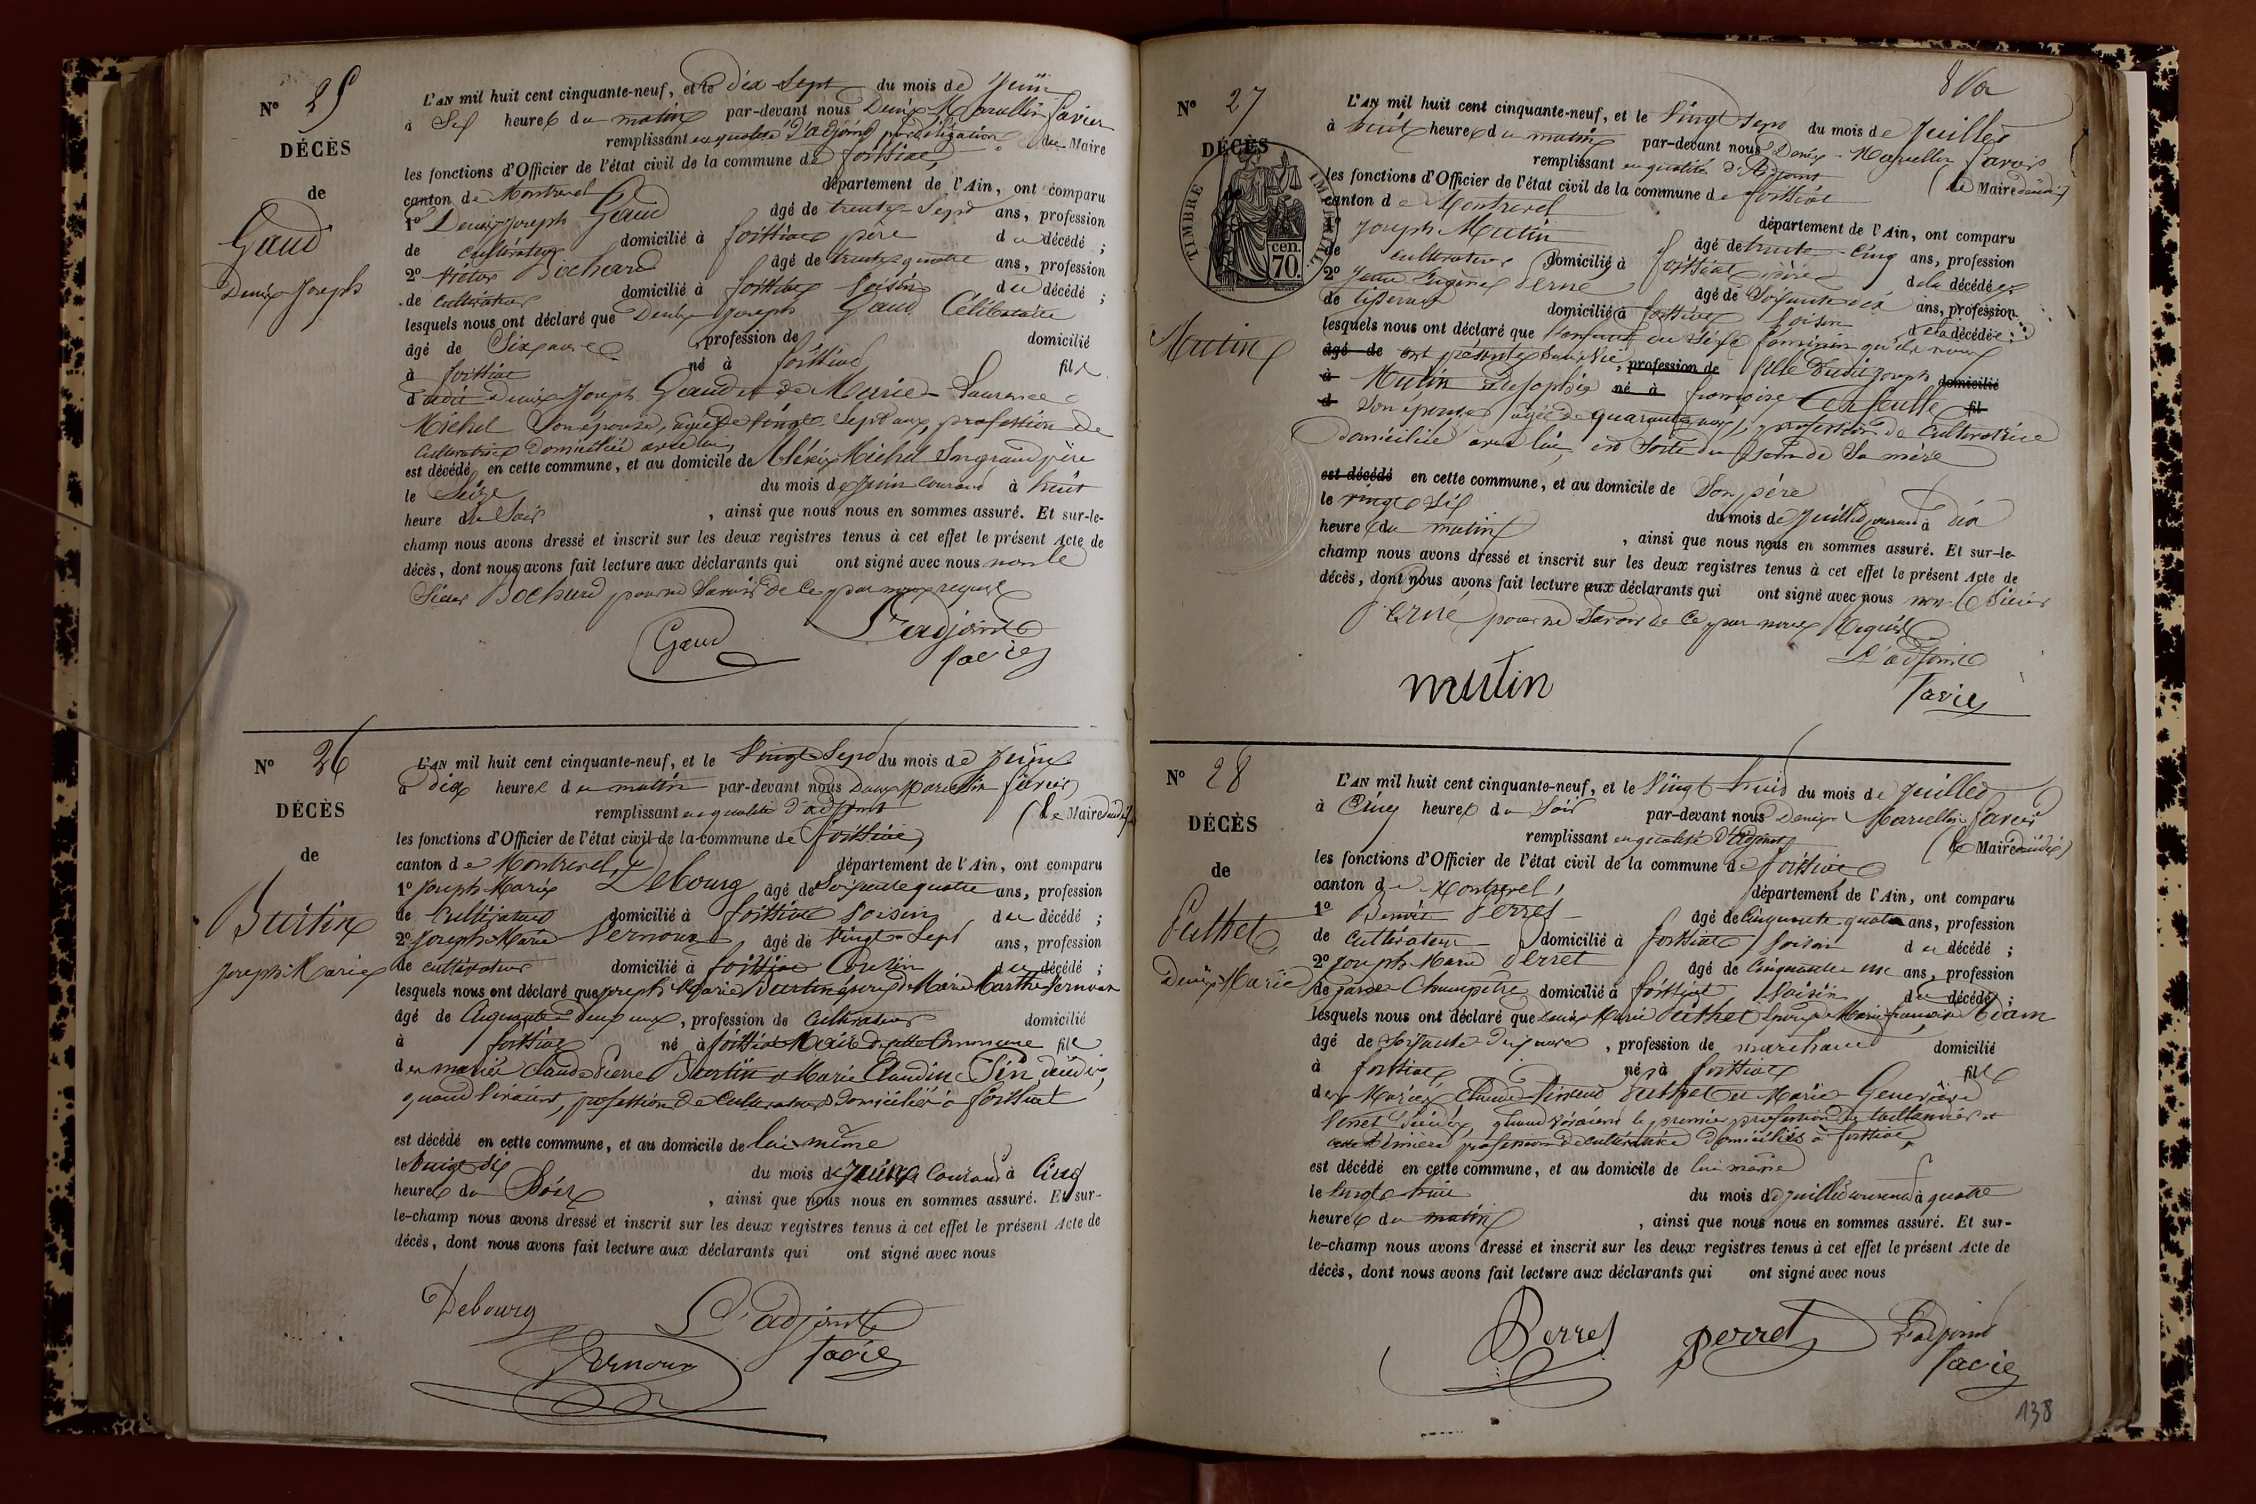 N° 25
DÉCÈS
de
Gaud
Denis Joseph
L'AN mil huit cent cinquante-neuf, et le dix sept du mois de Juin
à Six heures du matin par-devant nous Denis Marcellin Favier
remplissant en qualité d'adjoint par délégation du Maire
les fonctions d'Officier de l'état civil de la commune de foissiat,
canton de Montrevel département de l'Ain, ont comparu
1° Denis Joseph Gaud âgé de trente-Sept ans, profession
de Cultivateur domicilié à foissiat père du décédé ;
2° Victor Bochard âgé de trente quatre ans, profession
de Cultivateur domicilié à foissiat Voisin du décédé ;
lesquels nous ont déclaré que Denis Joseph Gaud Célibataire
âgé de Six ans profession de domicilié
à foissiat né à foissiat fils
dudit Denis Joseph Gaud et de Marie-Laurence
Michel Son épouse, âgée de vingt Sept ans, profession de
Cultivatrice domiciliée avec lui,
est décédé en cette commune, et au domicile de Aléxis Michel Son grand père
le Seize du mois de Juin courant à huit
heure du Soir , ainsi que nous nous en sommes assuré. Et sur-le-
champ nous avons dressé et inscrit sur les deux registres tenus à cet effet le présent Acte de
décès, dont nous avons fait lecture aux déclarants qui ont signé avec nous non le
Sieur Bochard pour ne Savoir de ce par nous requis
Gaud L'adjoint
Favier
N° 26
DÉCÈS
de
Burtin
Joseph-Marie
L'AN mil huit cent cinquante-neuf, et le Vingt Sept du mois de Juin
à dix heures du matin par-devant nous Denis Marcellin Favier
remplissant en qualité d'adjoint (le Maire
les fonctions d'Officier de l'état civil de la commune de foissiat
canton de Montrevel, département de l'Ain, ont comparu
1° Joseph-Marie Debourg âgé de Soixante quatre ans, profession
de Cultivateur domicilié à foissiat Voisin du décédé ;
2° Joseph-Marie Pernoux âgé de Vingt-Sept ans, profession
de cultivateur domicilié à foissiat Cousin du décédé ;
lesquels nous ont déclaré que Joseph Marie Burtin époux de Marie Marthe Pernoux
âgé de Cinquante deux ans, profession de Cultivateur domicilié
à foissiat né à foissiat fils
des mariés Claude Pierre Burtin et Marie Claudine
quand Vivaient, profession de Cultivateurs domiciliés à foissiat
est décédé en cette commune, et au domicile de lui-même
le Vingt Six du mois de Juin Courant à Cinq
heures du Soir , ainsi que nous nous en sommes assuré. Et sur-
le-champ nous avons dressé et inscrit sur les deux registres tenus à cet effet le présent Acte de
décès, dont nous avons fait lecture aux déclarants qui ont signé avec nous
Debourg L'adjoint
Pernoux Favier
N° 27
DÉCÈS
TIMBRE IMPÉRIAL
cen.
70.
Mutin
L'AN mil huit cent cinquante-neuf, et le Vingt Sept du mois de Juillet
à huit heures du matin par-devant nous Denis-Marcellin Favier
remplissant en qualité d'Adjoint (le Maire
les fonctions d'Officier de l'état civil de la commune de foissiat
canton de Montrevel département de l'Ain, ont comparu
1° Joseph Mutin âgé de trente-Cinq ans, profession
de cultivateur domicilié à foissiat père de la décédée
2° Jean Eugène Perne âgé de Soixante dix ans, profession
de tisserand domicilié à foissiat Voisin de la décédée ;
lesquels nous ont déclaré que l'enfant du Sexe féminin qu'ils nous
âgé de ont présenté Sans Vie, profession de fille dudit Joseph domicilié
à Mutin né à françoise fil
d Son épouse âgée de quarante ans, profession de Cultivatrice
domiciliée avec lui, est Sortie du Sein de Sa mère
est décédé en cette commune, et au domicile de Son père
le vingt Six du mois de Juillet courant à dix
heures du matin , ainsi que nous nous en sommes assuré. Et sur-le-
champ nous avons dressé et inscrit sur les deux registres tenus à cet effet le présent Acte de
décès, dont nous avons fait lecture aux déclarants qui ont signé avec nous non le Sieur
Perne pour ne Savoir de ce par nous Requis
L'adjoint
mutin Favier
N° 28
DÉCÈS
de
Puthet
Denis-Marie
L'AN mil huit cent cinquante-neuf, et le Vingt huit du mois de Juillet
à Cinq heures du Soir par-devant nous Denis Marcellin Favier
remplissant en qualité d'Adjoint (le Maire
les fonctions d'Officier de l'état civil de la commune de foissiat
canton de Montrevel, département de l'Ain, ont comparu
1° Benoit Perret âgé de Cinquante quatre ans, profession
de Cultivateur domicilié à foissiat Voisin du décédé ;
2° Joseph-Marie Perret âgé de Cinquante un ans, profession
de garde Champêtre domicilié à foissiat Voisin du décédé ;
lesquels nous ont déclaré que Denis Marie Puthet Marie françoise Adam
âgé de Soixante ans, profession de marchand domicilié
à foissiat né à foissiat fils
des Mariés Claude Puthet et Marie Geneviève
quand vivaient le premier profession de et
profession de cultivatrice domiciliés à foissiat,
est décédé en cette commune, et au domicile de lui même
le Vingt huit du mois de Juillet courant à quatre
heures du matin , ainsi que nous nous en sommes assuré. Et sur-
le-champ nous avons dressé et inscrit sur les deux registres tenus à cet effet le présent Acte de
décès, dont nous avons fait lecture aux déclarants qui ont signé avec nous
Perret perret L'adjoint
Favier
138